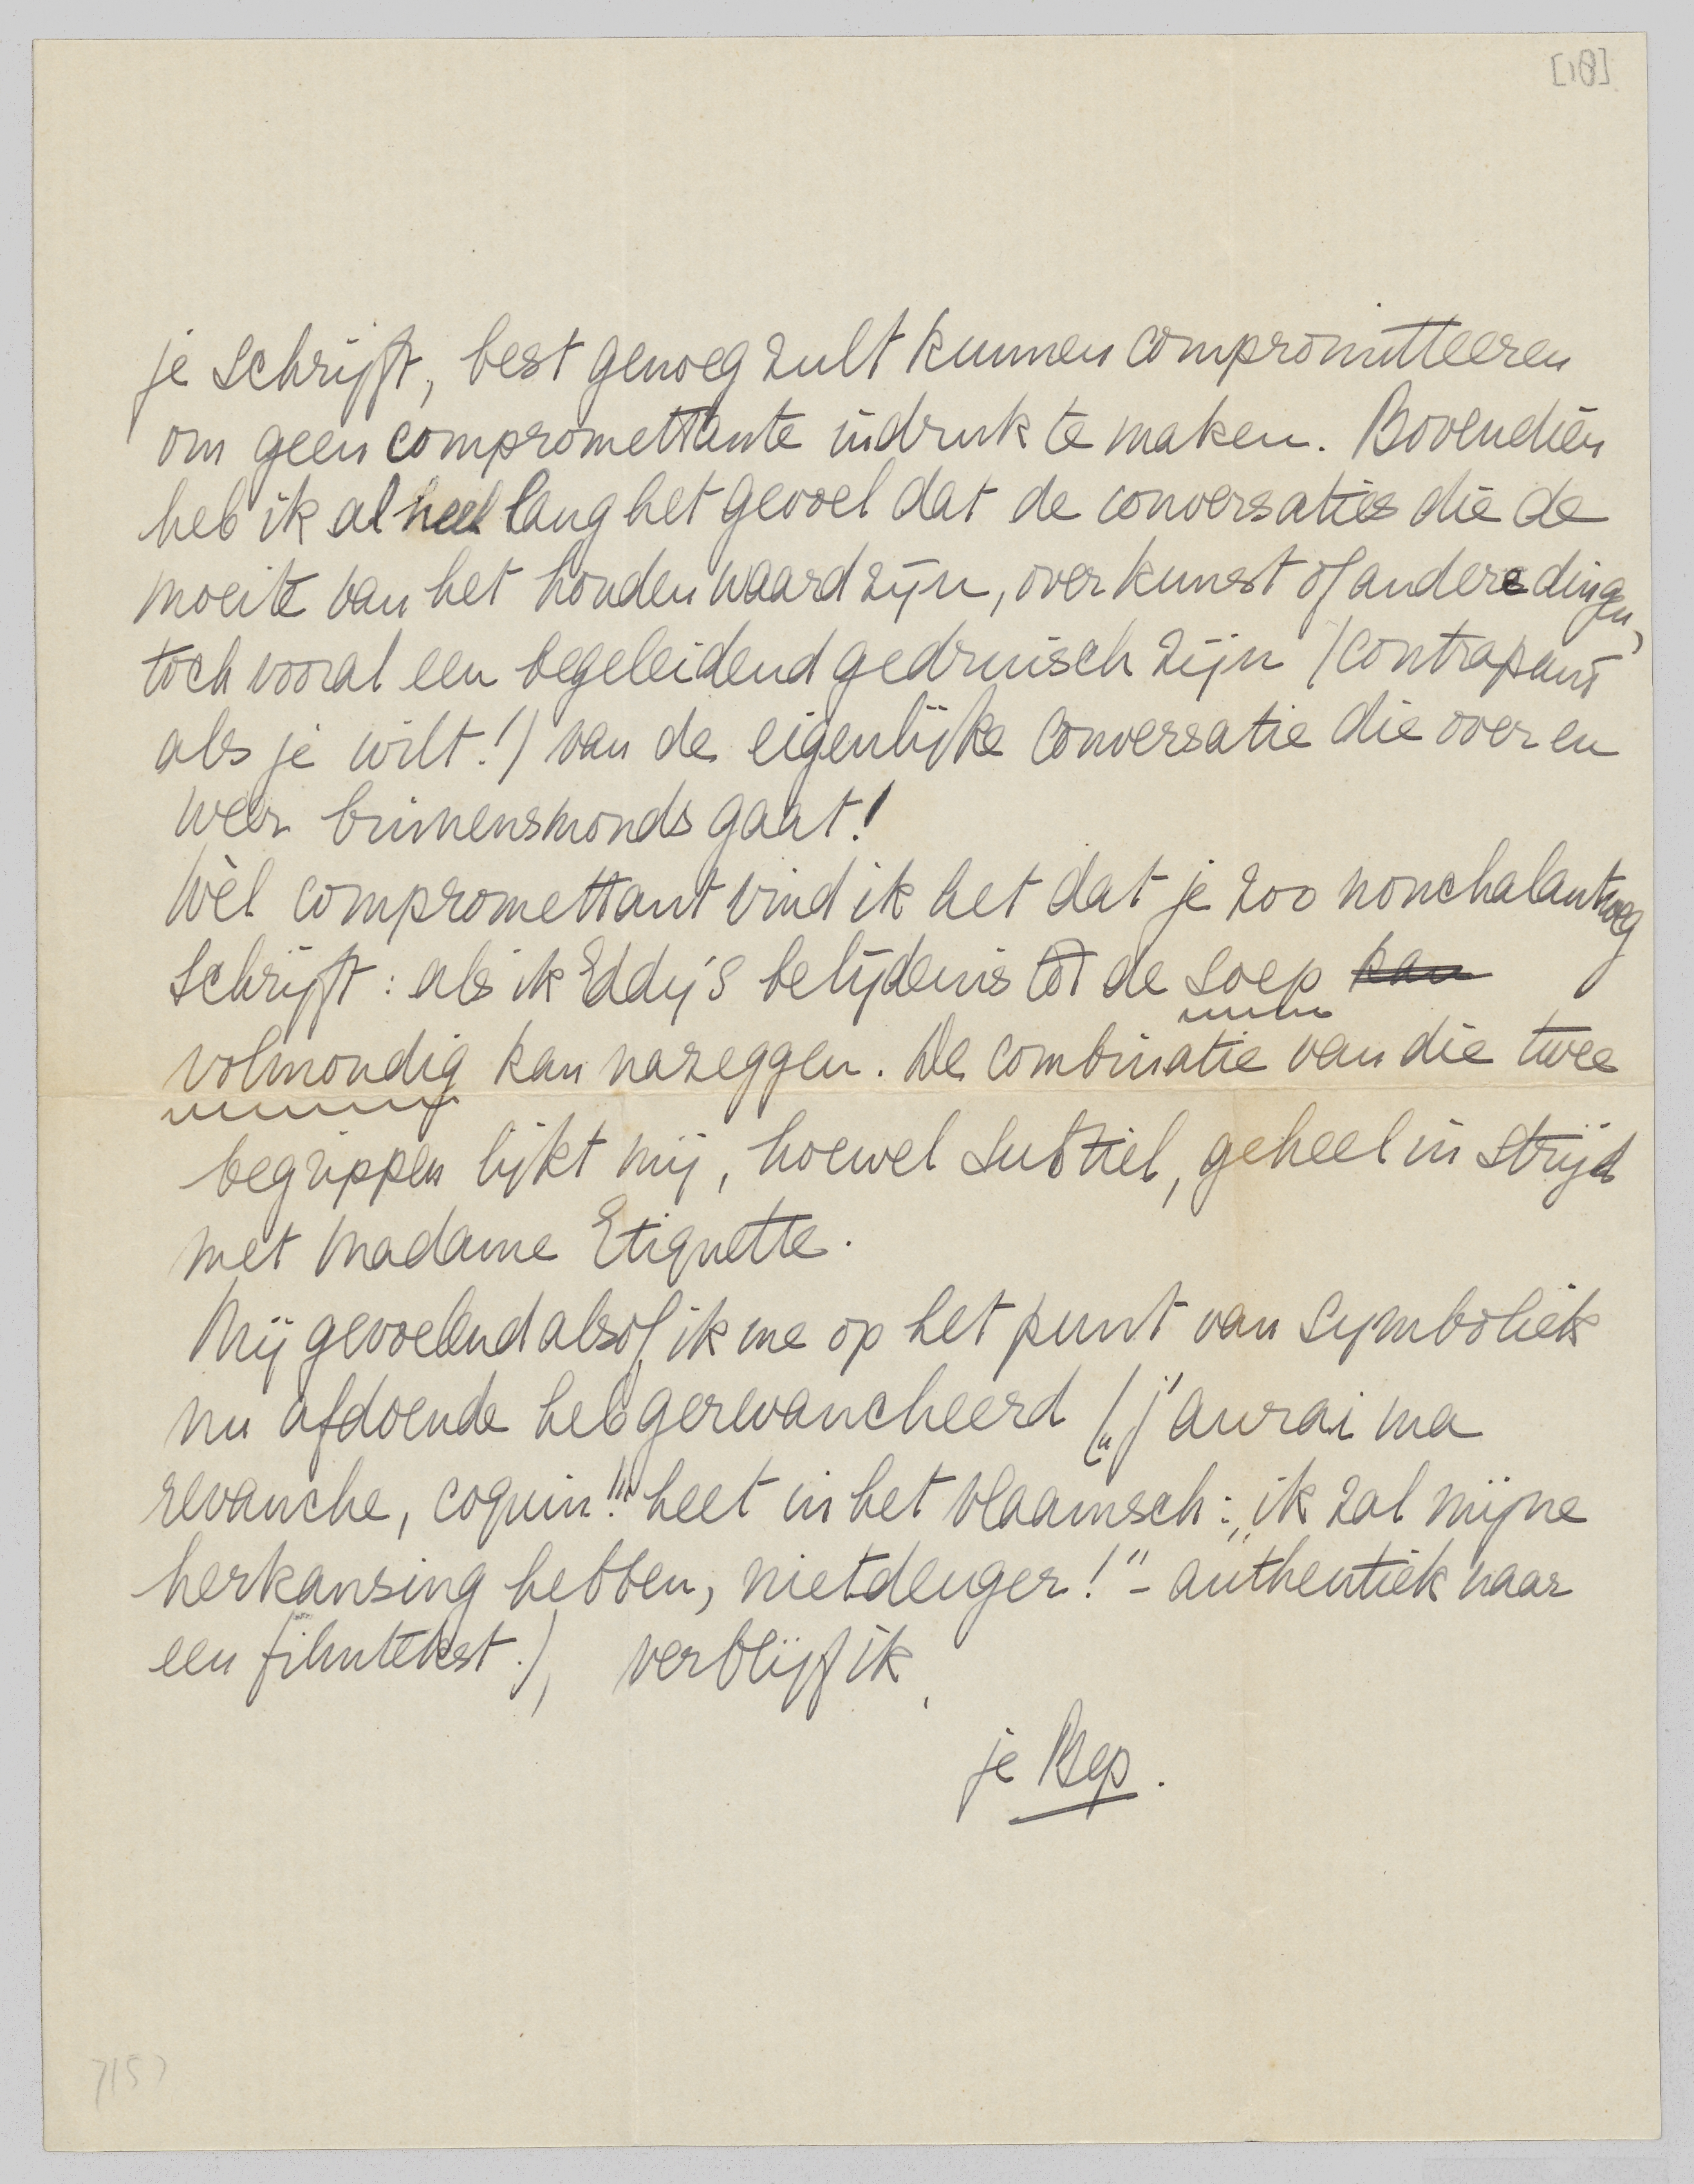 [18]
je schrijft, best genoeg zult kunnen compromitteeren
om geen compromettante indruk te maken. Bovendien
heb ik al heel lang het gevoel dat de conversaties die de
moeite van het houden waard zijn, over kunst of andere dingen,
toch vooral een begeleidend gedruisch zijn (contrapunt
als je wilt!) van de eigenlijke conversatie die over en
weer binnensmonds gaat!
Wèl compromettant vind ik het dat je zoo nonchalantweg
schrijft: als ik Eddy's belijdenis tot de soep kan
volmondig kan nazeggen. De combinatie van die twee
begrippen lijkt mij, hoewel subtiel, geheel in strijd
met Madame Etiquette.
Mij gevoelend alsof ik me op het punt van symboliek
nu afdoende heb gerevancheerd („j'aurai ma
revanche, coquin!" heet in het Vlaamsch: „ik zal mijne
herkansing hebben, nietdeuger!" - authentiek naar
een filmtekst.), verblijf ik,
je Bep.